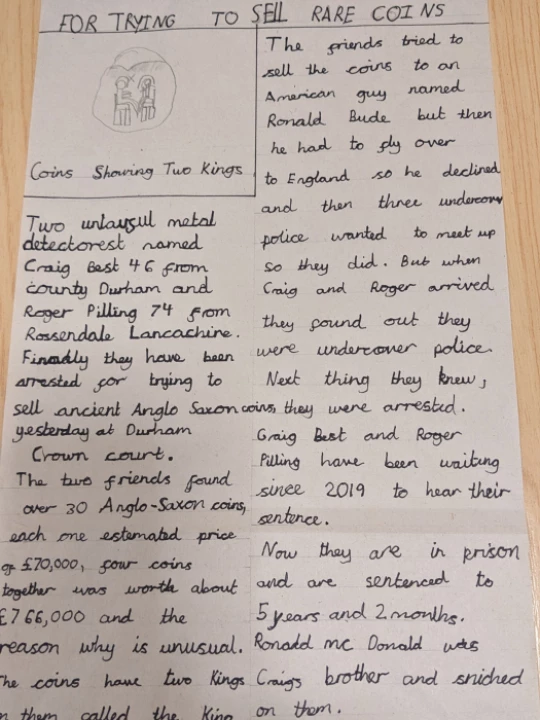 FOR TRYING TO SELL RARE COINS
Coins Showing Two Kings
Two unlawful metal
detectorest named
Craig Best 46 from
county Durham and
Roger Pilling 74 from
Rossendale Lancachire.
Finadly they have been
arrested for trying to
sell ancient Anglo Saxon coins,
yesterday at Durham
Crown court.
The two friends found
over 30 Anglo-Saxon coins,
each one estemated price
of £70,000, four coins
together was worth about
£766,000 and the
reason why is unusual.
The coins have two Kings
on them called the King
The friends tried to
sell the coins to an
American guy named
Ronald Bude but then
he had to fly over
to England so he declined
and then three undercover
police wanted to meet up
so they did. But when
Craig and Roger arrived
they found out they
were undercover police.
Next thing they knew,
they were arrested.
Graig Best and Roger
Pilling have been waiting
since 2019 to hear their
sentence.
Now they are in prison
and are sentenced to
5 years and 2 months.
Ronadd mc Donald was
Craigs brother and sniched
on them.